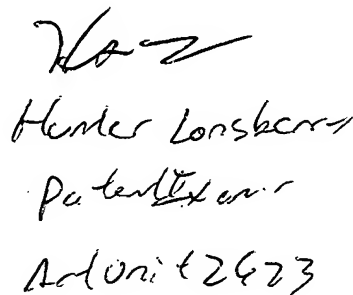 Hunter Lonsberry
Patent Exam.r
Art Unit 2623